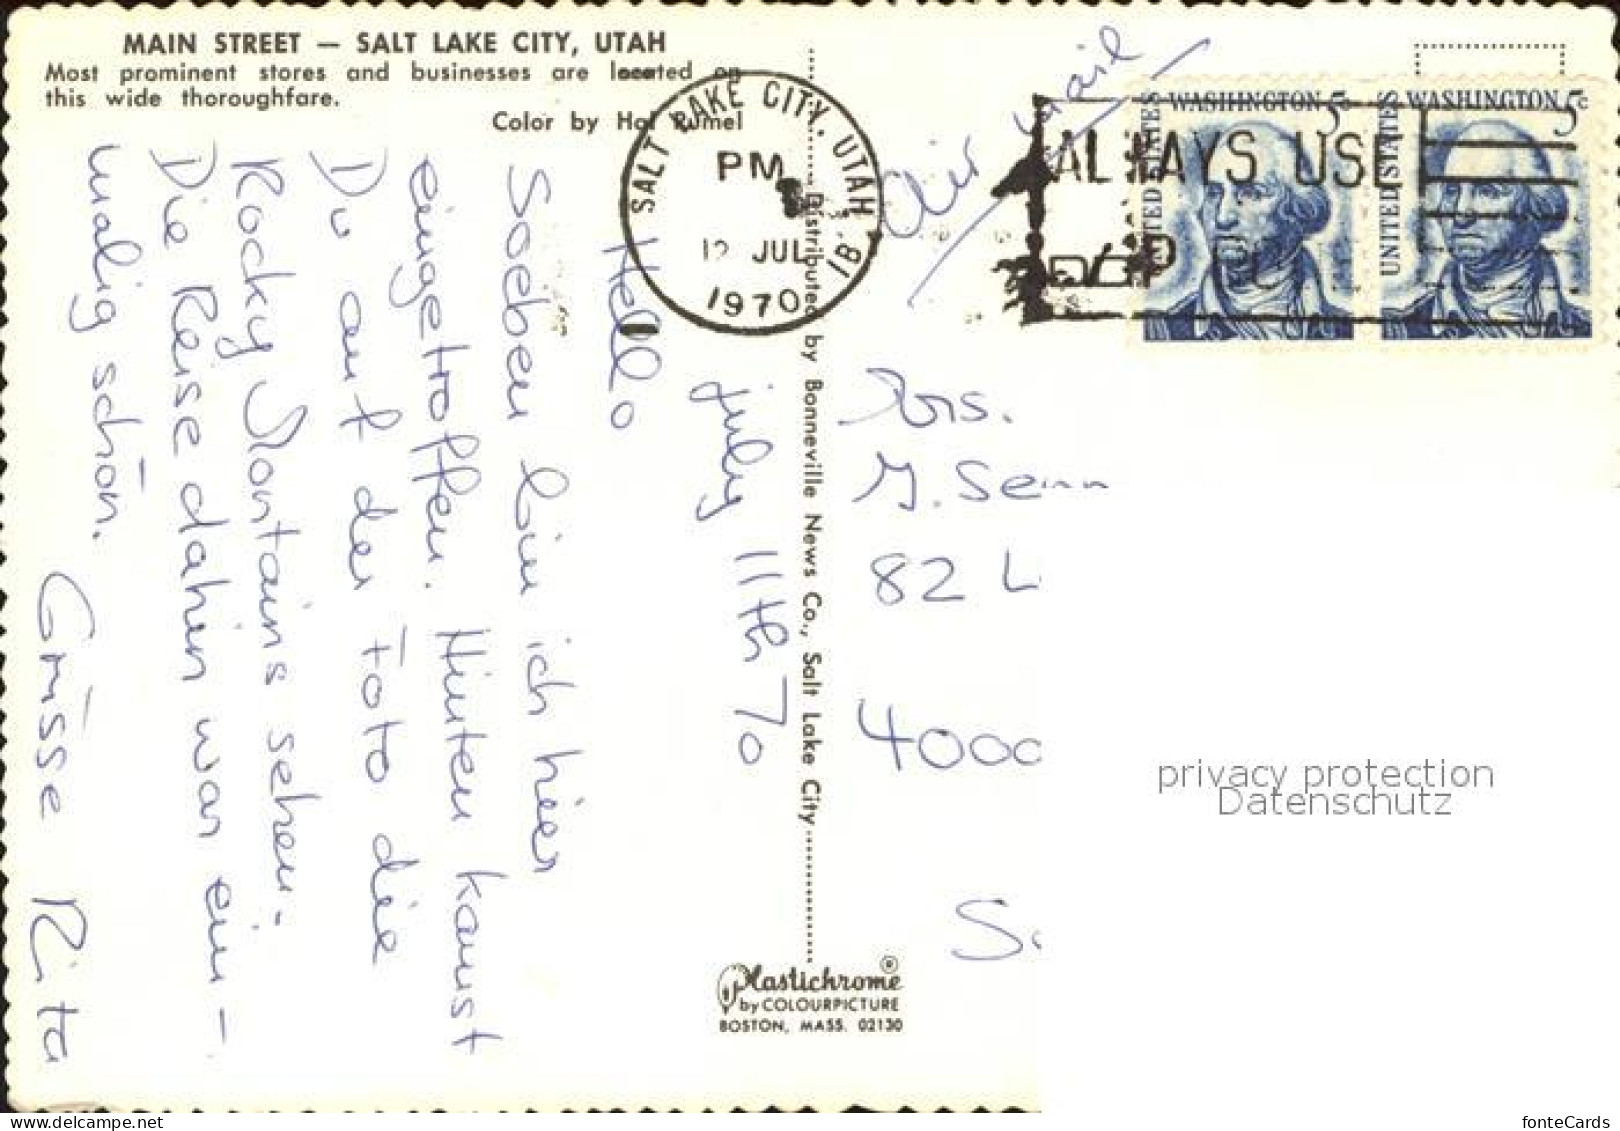 MAIN STREET — SALT LAKE CITY, UTAH
Most prominent stores and businesses are located on
this wide thoroughfare.
Color by Hal Rumel
july 11th 70
Hello
Soeben bin ich hier
eingetroffen. Hinten kannst
Du auf der Foto die
Rocky Montains sehen.
Die Reise dahin war ein-
malig schön.
Grüsse Rita
SALT LAKE CITY, UTAH
PM
12 JUL
1970
1B
Distributed by Bonneville News Co., Salt Lake City
Air mail
ALWAYS USE
ZIP CO
UNITED STATES
WASHINGTON 5c
UNITED STATES
WASHINGTON 5c
M. Senn
82 L
4000
Plastichrome ®
by COLOURPICTURE
BOSTON, MASS. 02130
privacy protection
Datenschutz
www.delcampe.net
fonteCards